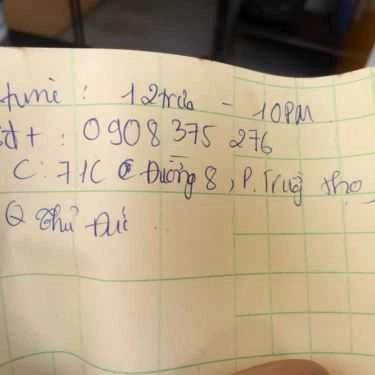 time : 12 trưa - 10PM
sđt : 0908 375 276
C : 71C Đường 8, P. Trườ thọ
Q Thủ Đức.